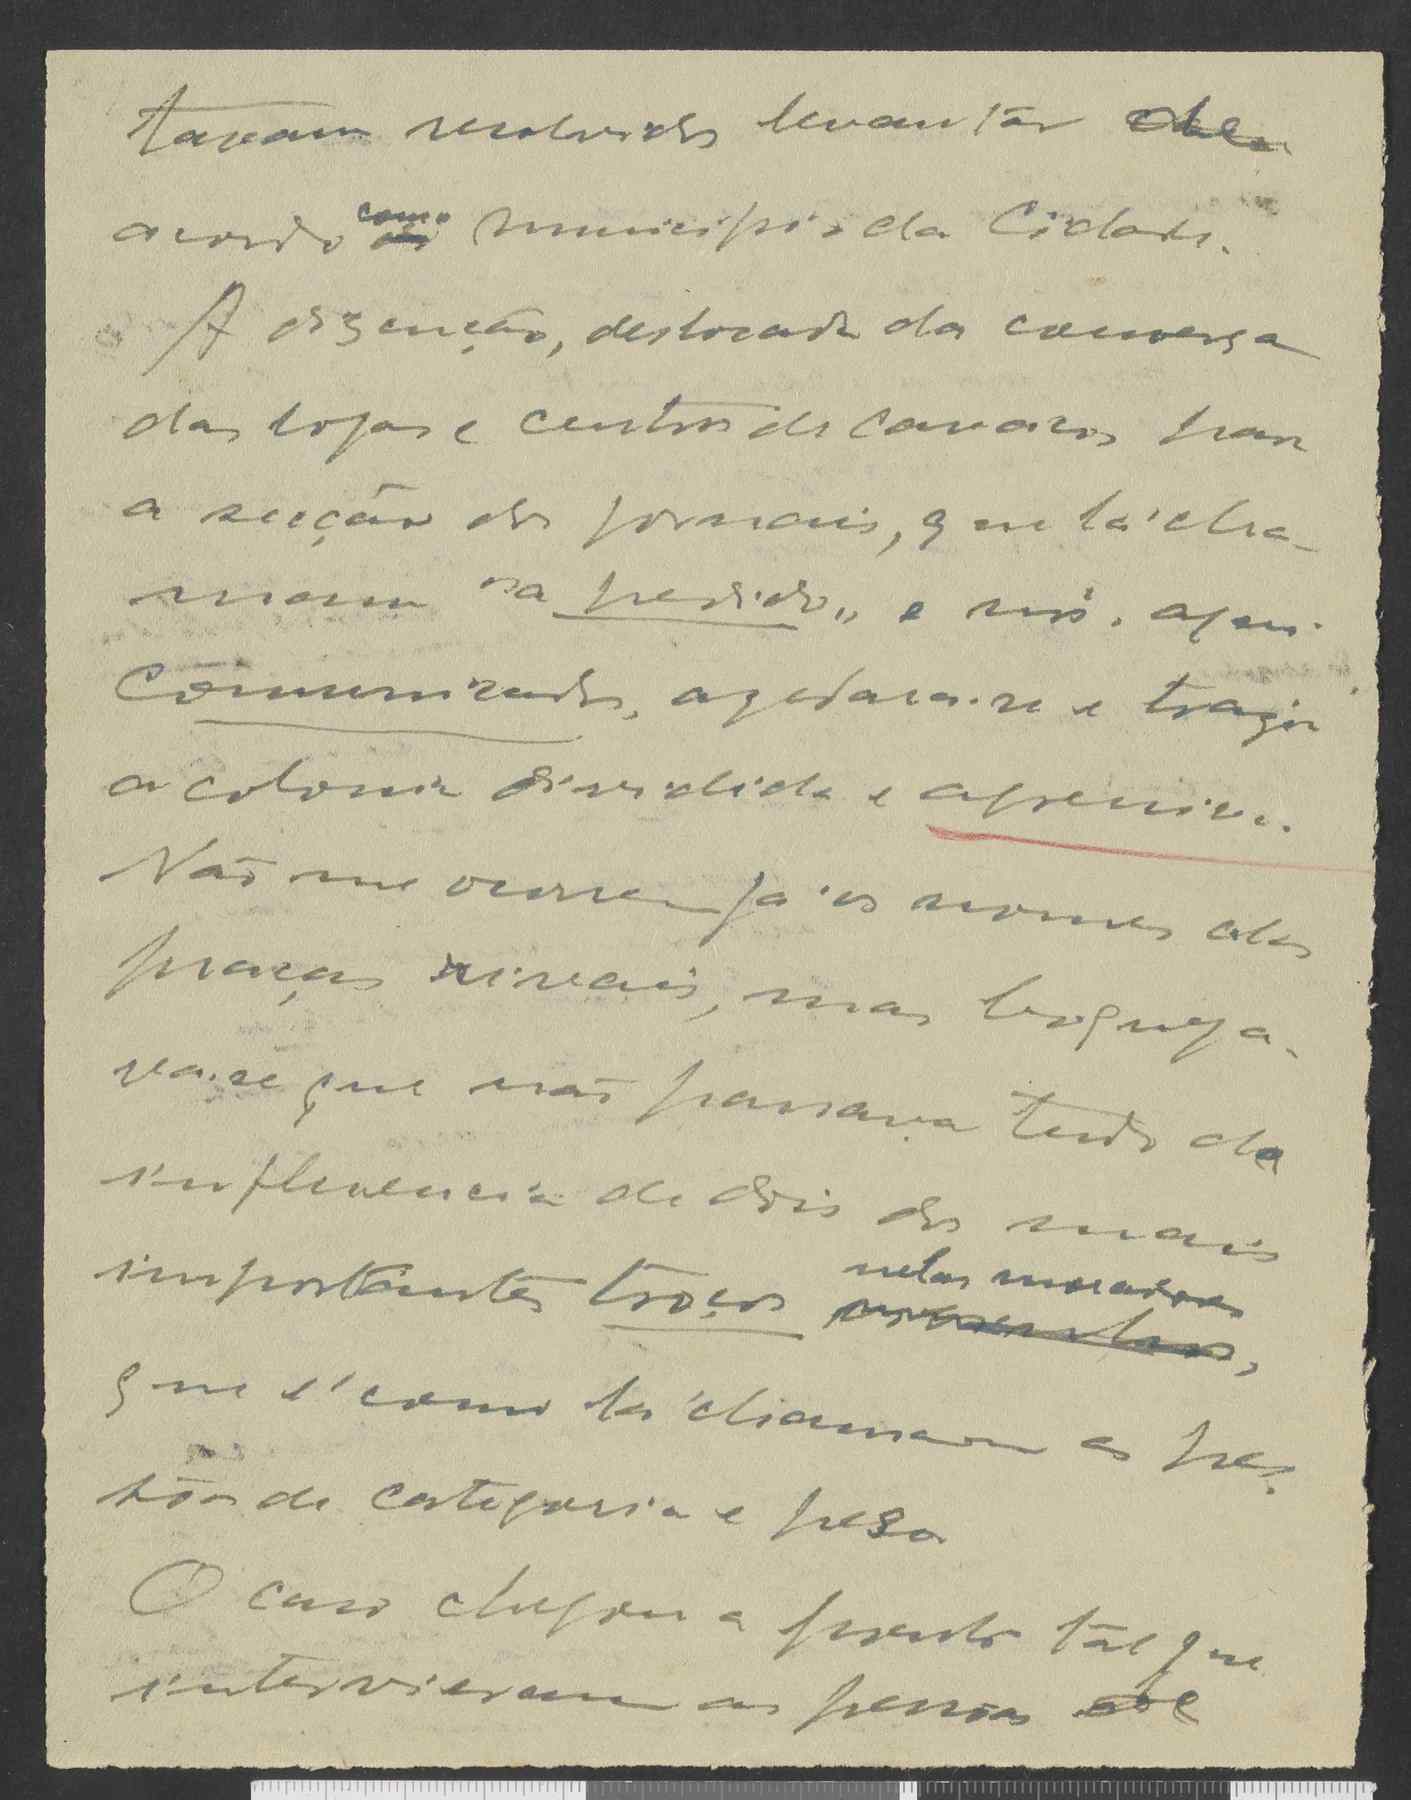 tavam resolvidos levantar de
acordo com o municipio da Cidade.
A dizenção, deslocada da conversa
das lojas e centros de cavacos para
a secção dos jornais, que lá cha-
mam "a pedido" e nós, aqui
Comunicados, azedara-se e trazia
a colonia dividida e apreensiva.
Não me ocorrem já os nomes das
praças rivais, mas bosqueja-
va-se que não passava tudo da
influencia de dois dos mais
importantes troços nelas moradores,
que é como lá chamam as pes-
sôas de categoria e peso
O caso chegou a ponto tal que
intervieram as pessoas de